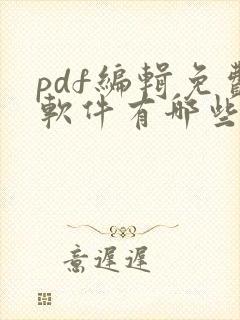 pdf編輯免費
軟件有哪些
意遲遲